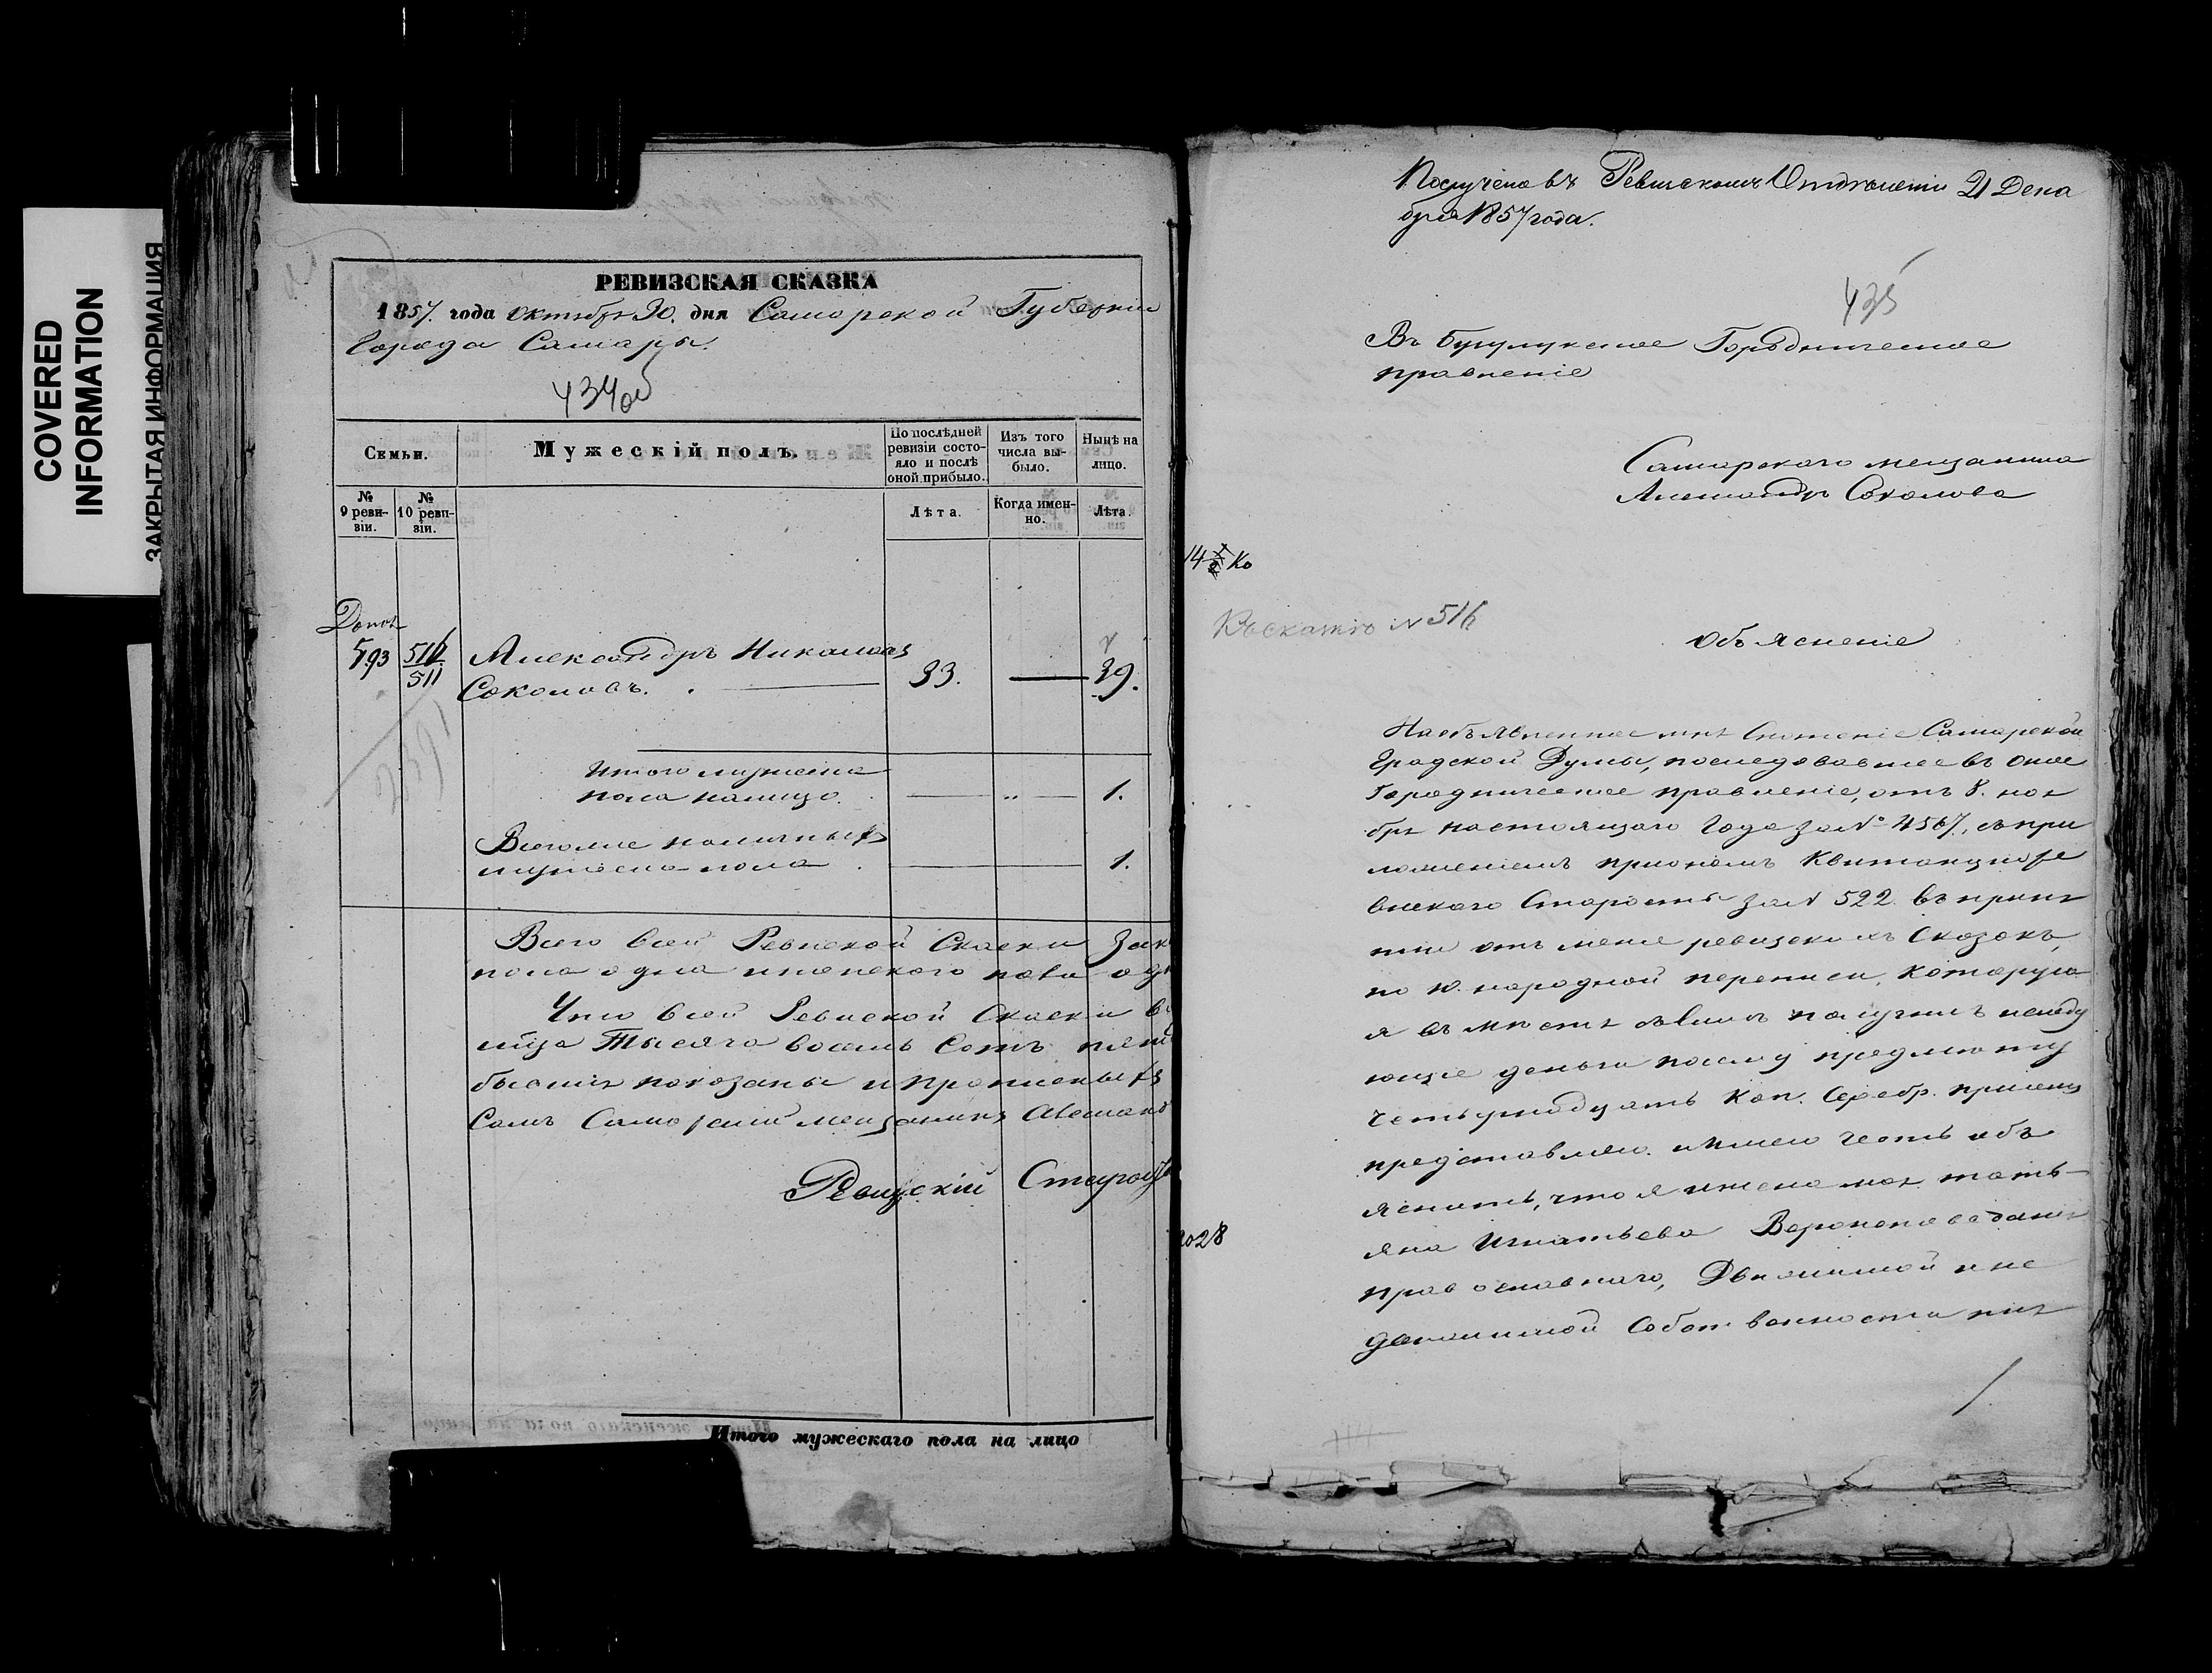 COVERED
INFORMATION
ЗАКРЫТАЯ ИНФОРМАЦИЯ
РЕВИЗСКАЯ СКАЗКА
1857. года октября 30. дня Самарской Губерніи
Города Самары.
434об
Семьи.
Мужескій полъ.
По послѣдней
ревизіи состо-
яло и послѣ
оной прибыло.
Изъ того
числа вы-
было.
Нынѣ на
лицо.
№
9 реви-
зіи.
№
10 реви-
зіи.
Лѣта.
Когда имен-
но.
Лѣта.
593
516
511
Александръ Николаев
Соколовъ.
33.
39.
Итого мужеска
пола налицо.
1.
Всего наличныхъ
мужеска пола
1.
Всего всей Ревиской Скаски
пола одна женскаго пола
Что всей Ревиской Скаски
Тысяча восемь Сотъ
показаны и прописныхъ
Самъ Самарскій мещанинъ
Ревизскій Старо
Итого мужескаго пола на лицо
Получено въ Ревизскомъ Отделении 21 Дека
бря 1857 года.
435
Въ Бугулукское Городническое
правленіе
Самарскаго мещанина
Александра Соколова
14 Ко
Къ скаскѣ № 516
Объясненіе
На объявленное мнѣ Сношеніе Самарской
Градской Думы, последовавшее въ оное
Городническое правленіе, отъ 8. ноя
бря настоящаго Года за № 4567, съ при
ложеніемъ при номъ Квитанціи ре
вискаго Старосты за № 522 въ приня
тии отъ меня ревизскихъ Сказокъ,
по 10. народной переписи, которую
я вместе съ симъ получилъ
ющіе деньги по
четырнадцать Коп. Серебр. при
представляю. имею честь объ
яснить, что я и жена моя тать
яна Игнатьева Вероисповеданія
православнаго, Движимой и не
движимой Собственности не
28